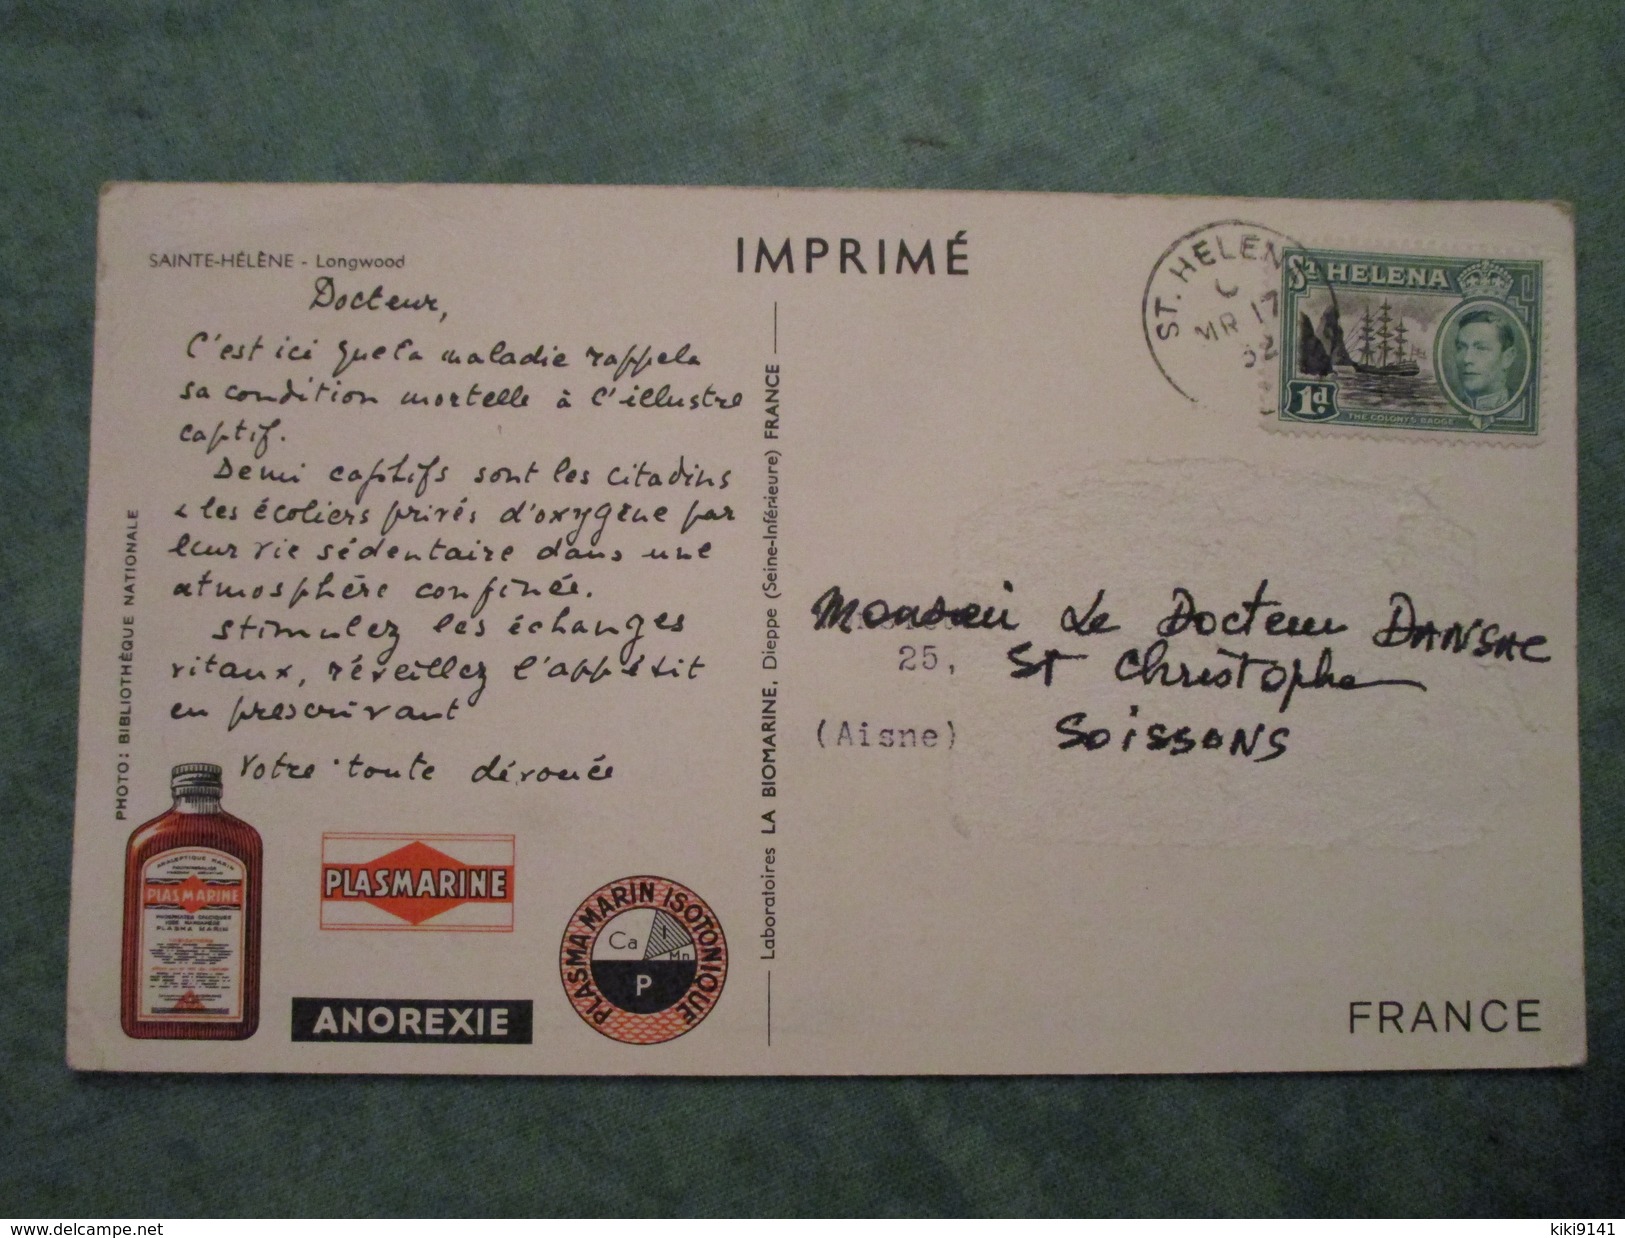 SAINTE-HÉLÈNE - Longwood
Docteur,
C'est ici que la maladie rappela
sa condition mortelle à l'illustre
captif.
Demi captifs sont les citadins
& les écoliers privés d'oxygène par
leur vie sédentaire dans une
atmosphère confinée.
Stimulez les échanges
vitaux, réveillez l'appétit
en prescrivant
Votre toute dévouée
PHOTO: BIBLIOTHÈQUE NATIONALE
ANALEPTIQUE MARIN
PLASMARINE
PLASMA MARIN
PLASMARINE
ANOREXIE
PLASMA MARIN ISOTONIQUE
Ca I Mn
P
Laboratoires LA BIOMARINE, Dieppe (Seine-Inférieure) FRANCE
IMPRIMÉ
ST. HELENA
C
MR 17
52
ST HELENA
1d.
THE COLONY'S BADGE
Monsieur Le Docteur DANSAC
25, St Christophe
(Aisne) SOISSONS
FRANCE
www.delcampe.net
kiki9141